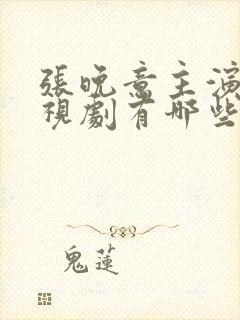 張晚意主演
視劇有哪些
鬼蓮